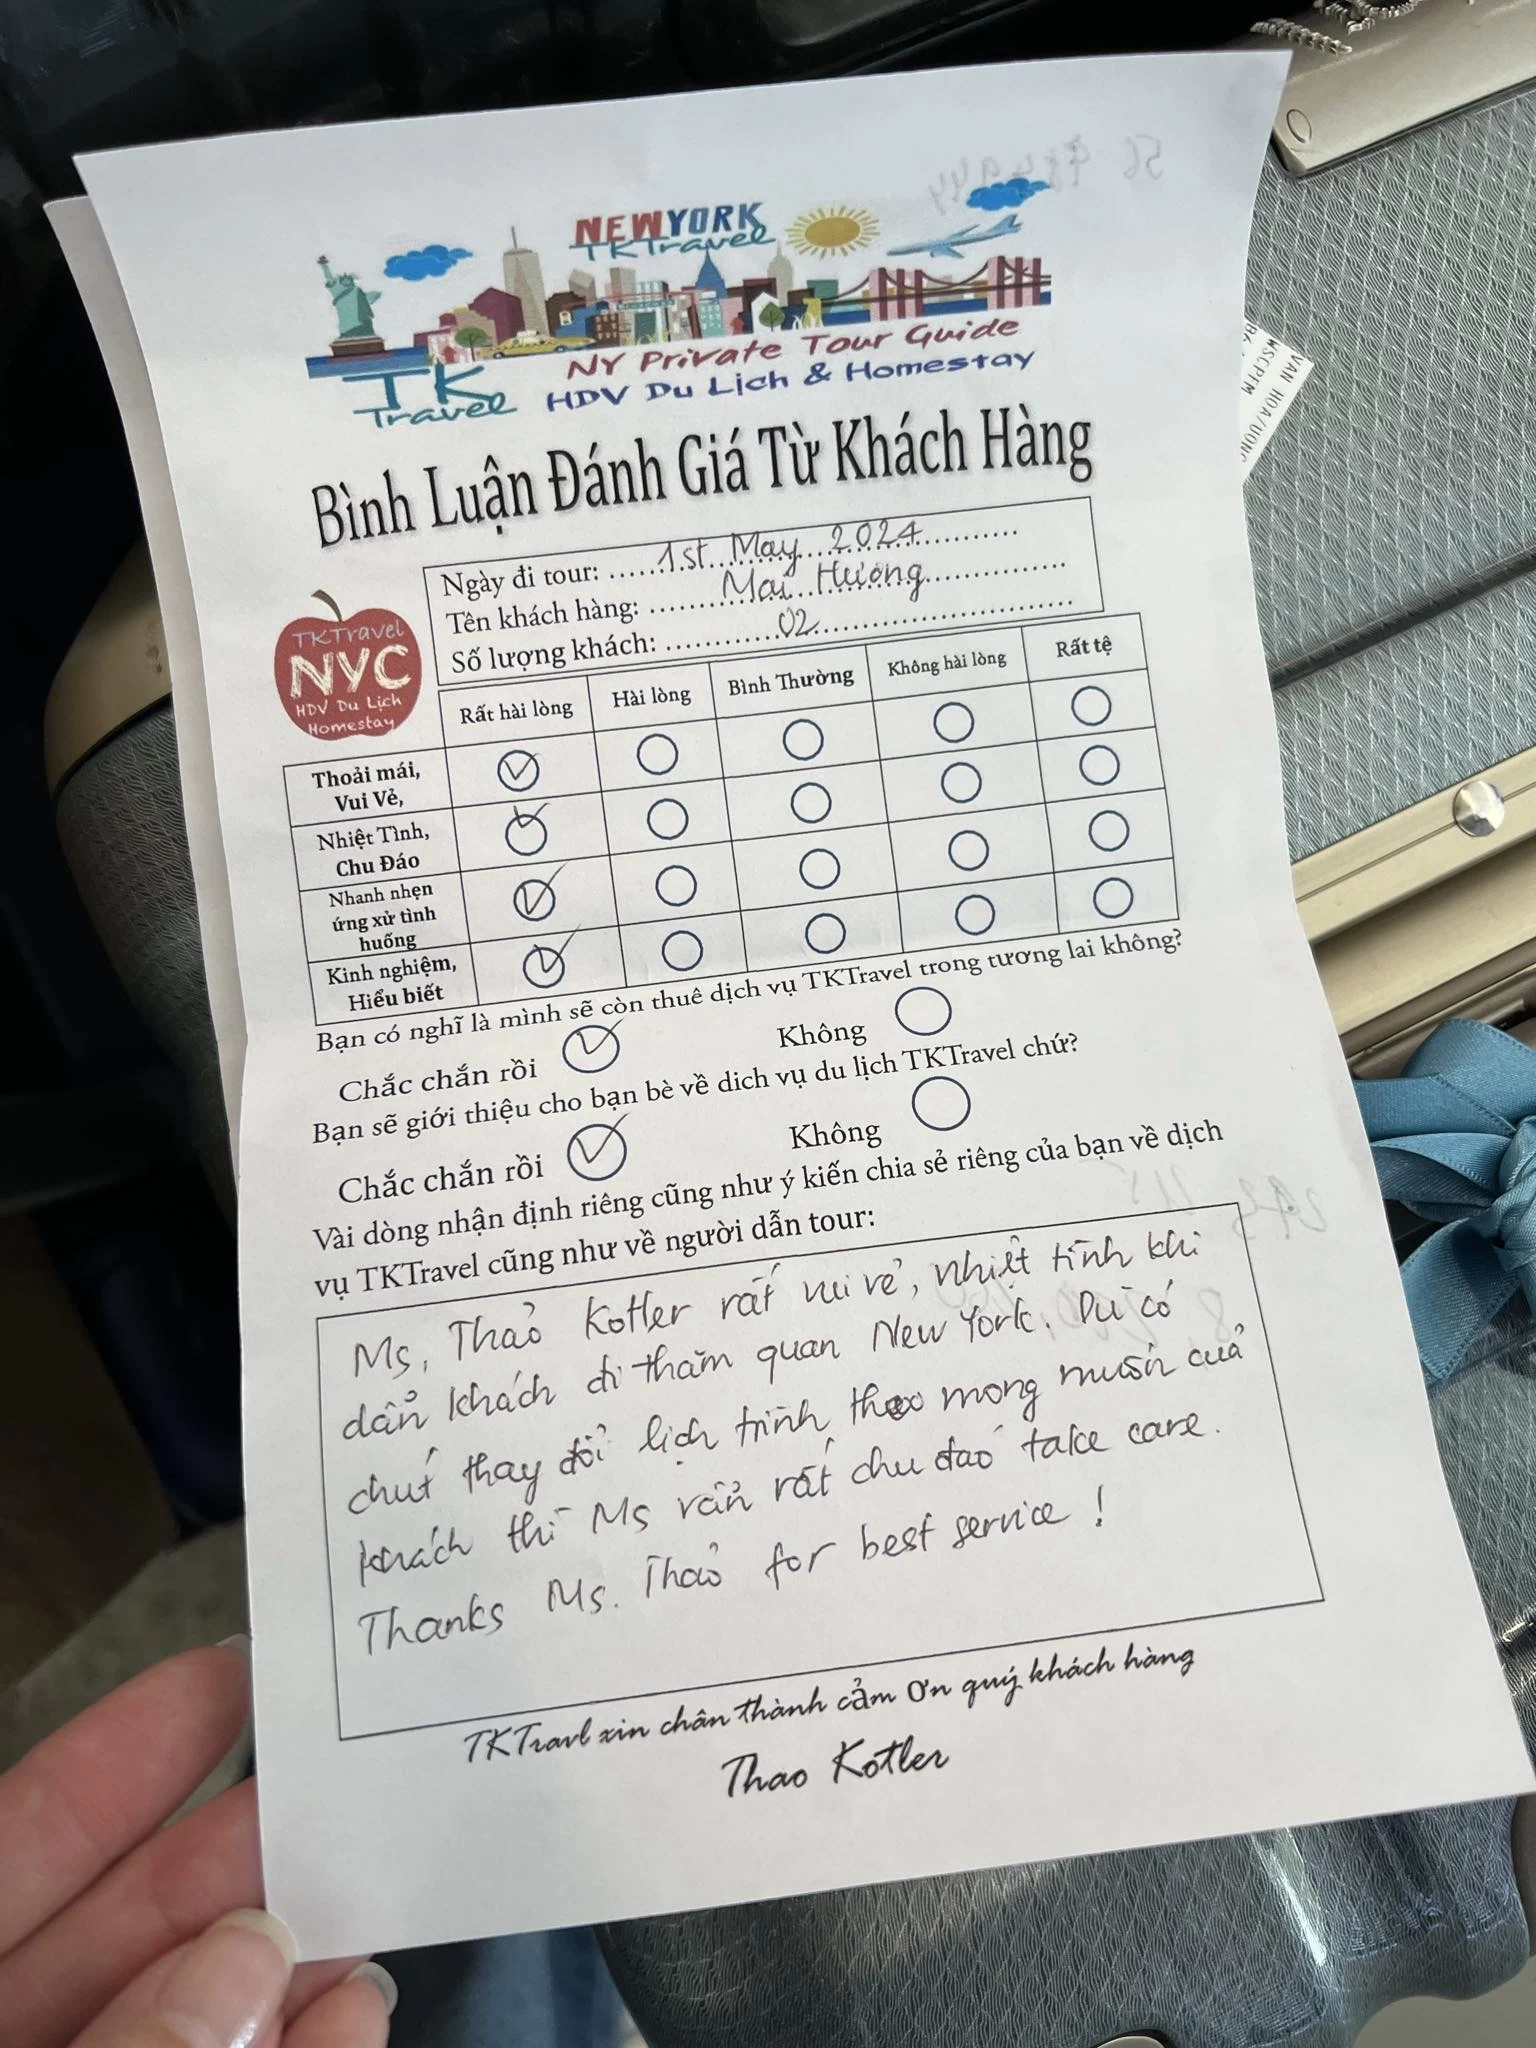 NEWYORK
TKTravel
NY Private Tour Guide
TK
Travel
HDV Du Lịch & Homestay
Bình Luận Đánh Giá Từ Khách Hàng
Ngày đi tour: 1st May 2024
Tên khách hàng: Mai Hương
Số lượng khách: 02
TKTravel
NYC
HDV Du Lịch
Homestay
Rất hài lòng Hài lòng Bình Thường Không hài lòng Rất tệ
Thoải mái,
Vui Vẻ,
Nhiệt Tình,
Chu Đáo
Nhanh nhẹn
ứng xử tình
huống
Kinh nghiệm,
Hiểu biết
Bạn có nghĩ là mình sẽ còn thuê dịch vụ TKTravel trong tương lai không?
Chắc chắn rồi Không
Bạn sẽ giới thiệu cho bạn bè về dich vụ du lịch TKTravel chứ?
Chắc chắn rồi Không
Vài dòng nhận định riêng cũng như ý kiến chia sẻ riêng của bạn về dịch
vụ TKTravel cũng như về người dẫn tour:
Ms. Thảo Kotler rất vui vẻ, nhiệt tình khi
dẫn khách đi thăm quan New York. Dù có
chút thay đổi lịch trình theo mong muốn của
khách thì Ms vẫn rất chu đáo take care.
Thanks Ms. Thảo for best service!
TKTravl xin chân thành cảm Ơn quý khách hàng
Thao Kotler
VAN HOA/UONG
WSCPFM